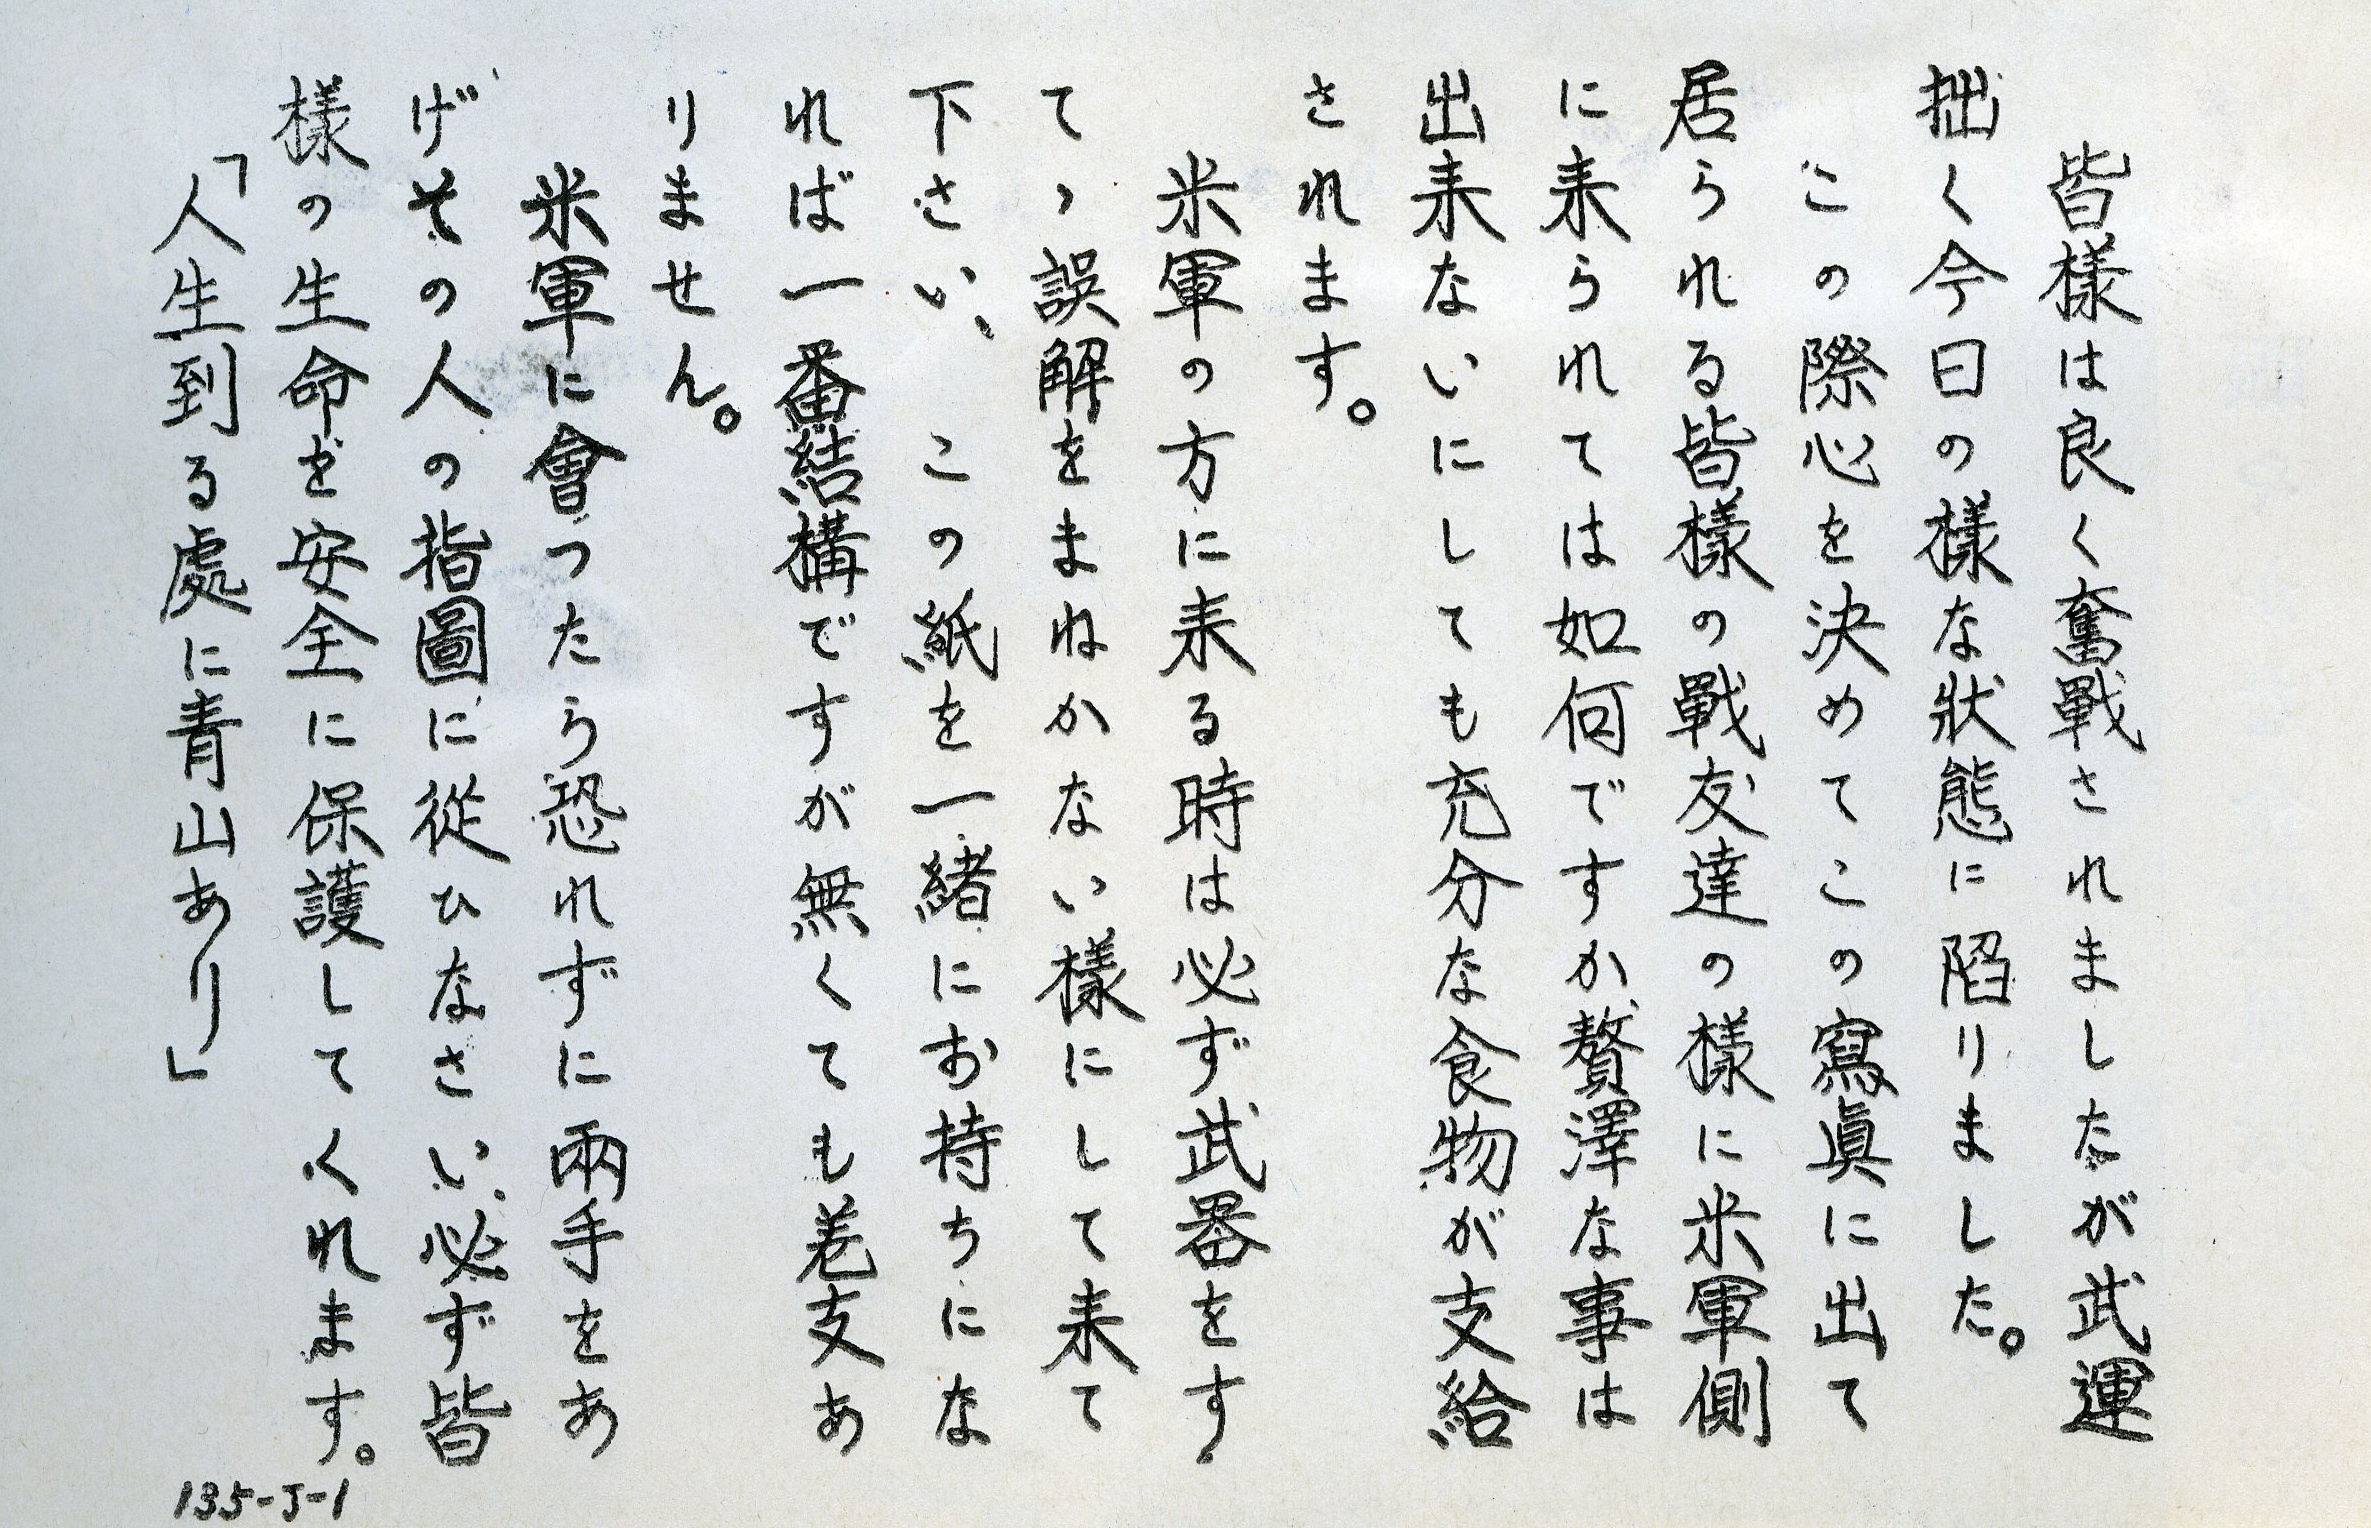 皆樣は良く奮戰されましたが武運
拙く今日の樣な狀態に陷りました。
この際心を決めてこの寫眞に出て
居られる皆樣の戰友達の樣に米軍側
に来られては如何ですか贅澤な事は
出来ないにしても充分な食物が支給
されます。
米軍の方に来る時は必ず武器をす
てゝ誤解をまねかない樣にして来て
下さい、この紙を一緒にお持ちにな
れば一番結構ですが無くても差支あ
りません。
米軍に會ったら恐れずに兩手をあ
げその人の指圖に從ひなさい必ず皆
樣の生命を安全に保護してくれます。
「人生到る處に青山あり」
135-J-1